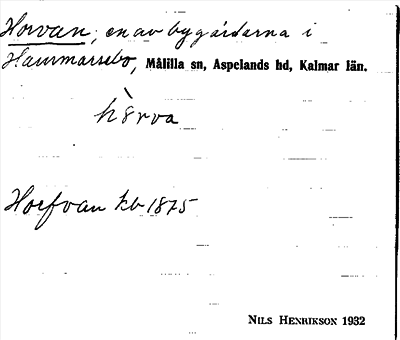 Horvan, en av bygårdarna i
Hammarsebo, Målilla sn, Aspelands hd, Kalmar län.
hȍrva
Horfvan kb 1875
NILS HENRIKSON 1932